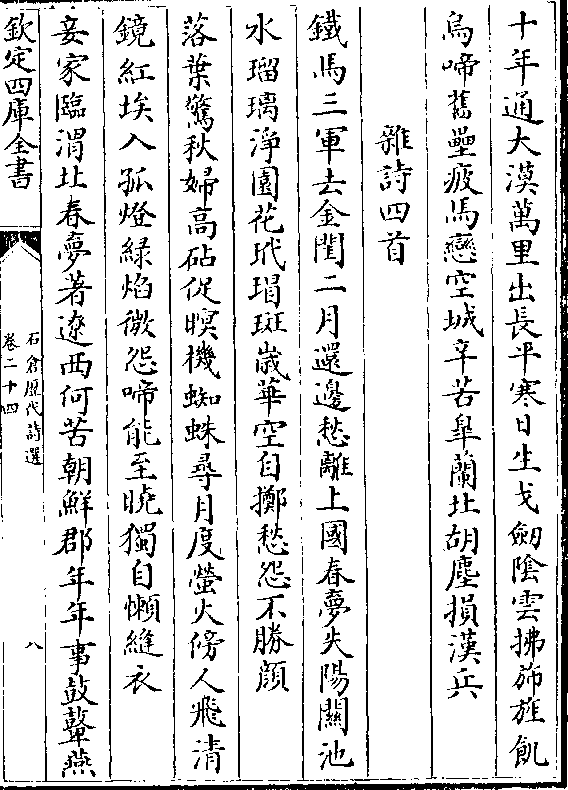 十年通大漠萬里出長平寒日生戈劒陰雲拂斾旌飢
烏啼舊壘疲馬戀空城辛苦臯蘭北胡塵損漢兵
雜詩四首
鐵馬三軍去金閨二月還邊愁離上國春夢失陽關池
水瑠璃淨園花玳瑁斑歳華空自擲愁怨不勝顔
落葉驚秋婦高砧促暝機蜘蛛尋月度螢火傍人飛清
鏡紅埃入孤燈緑焰微怨啼能至曉獨自懶縫衣
妾家臨渭北春夢著遼西何苦朝鮮郡年年事鼓鼙燕
欽定四庫全書
石倉歴代詩選
卷二十四
八